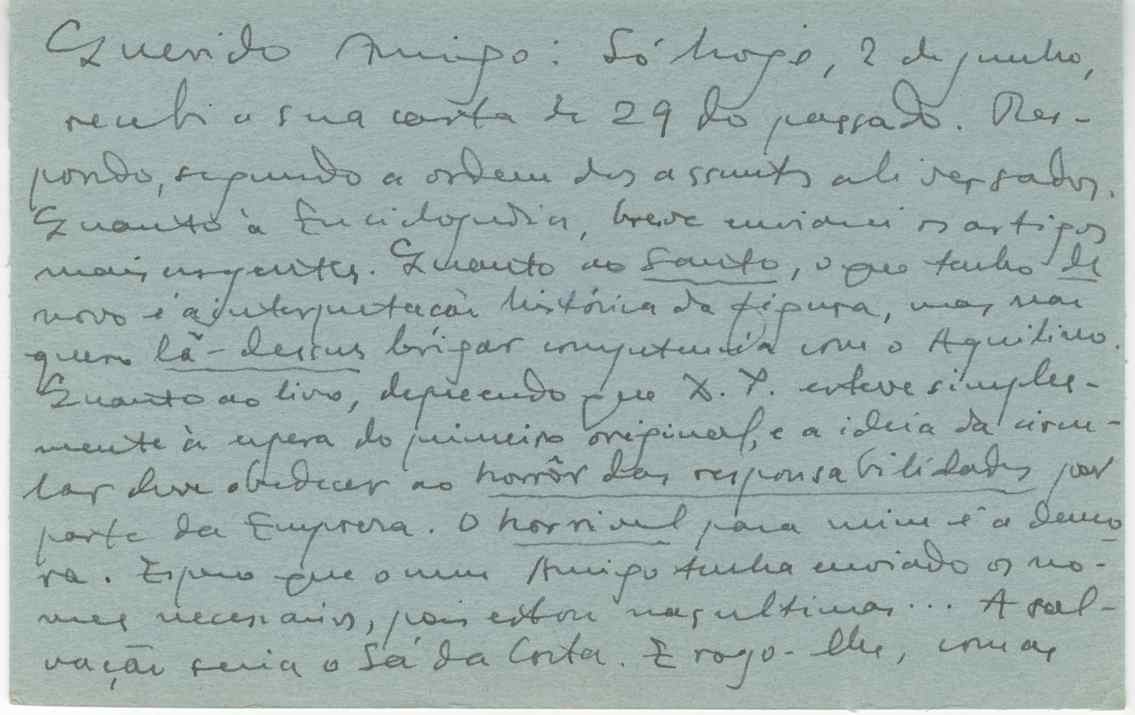 Querido Amigo: Só hoje, 2 de junho,
recebi a sua carta de 29 do passado. Res-
pondo, segundo a ordem dos assuntos ali versados.
Quanto à Enciclopédia, breve enviarei os artigos
mais urgentes. Quanto ao Santo, o que tenho de
novo é a interpretação histórica da figura, mas não
quero lã-dessus brigar competencia com o Aquilino.
Quanto ao livro, depreendo que X. Y. esteve simples-
mente à espera do primeiro original, e a ideia da circu-
lar deve obedecer ao horrôr das responsabilidades por
parte da Empresa. O horrivel para mim é a demo
ra. Espero que o meu Amigo tenha enviado os no-
mes necessarios, pois estou nas ultimas... A sal-
vação seria o Sá da Costa. E rogo-lhe, com as